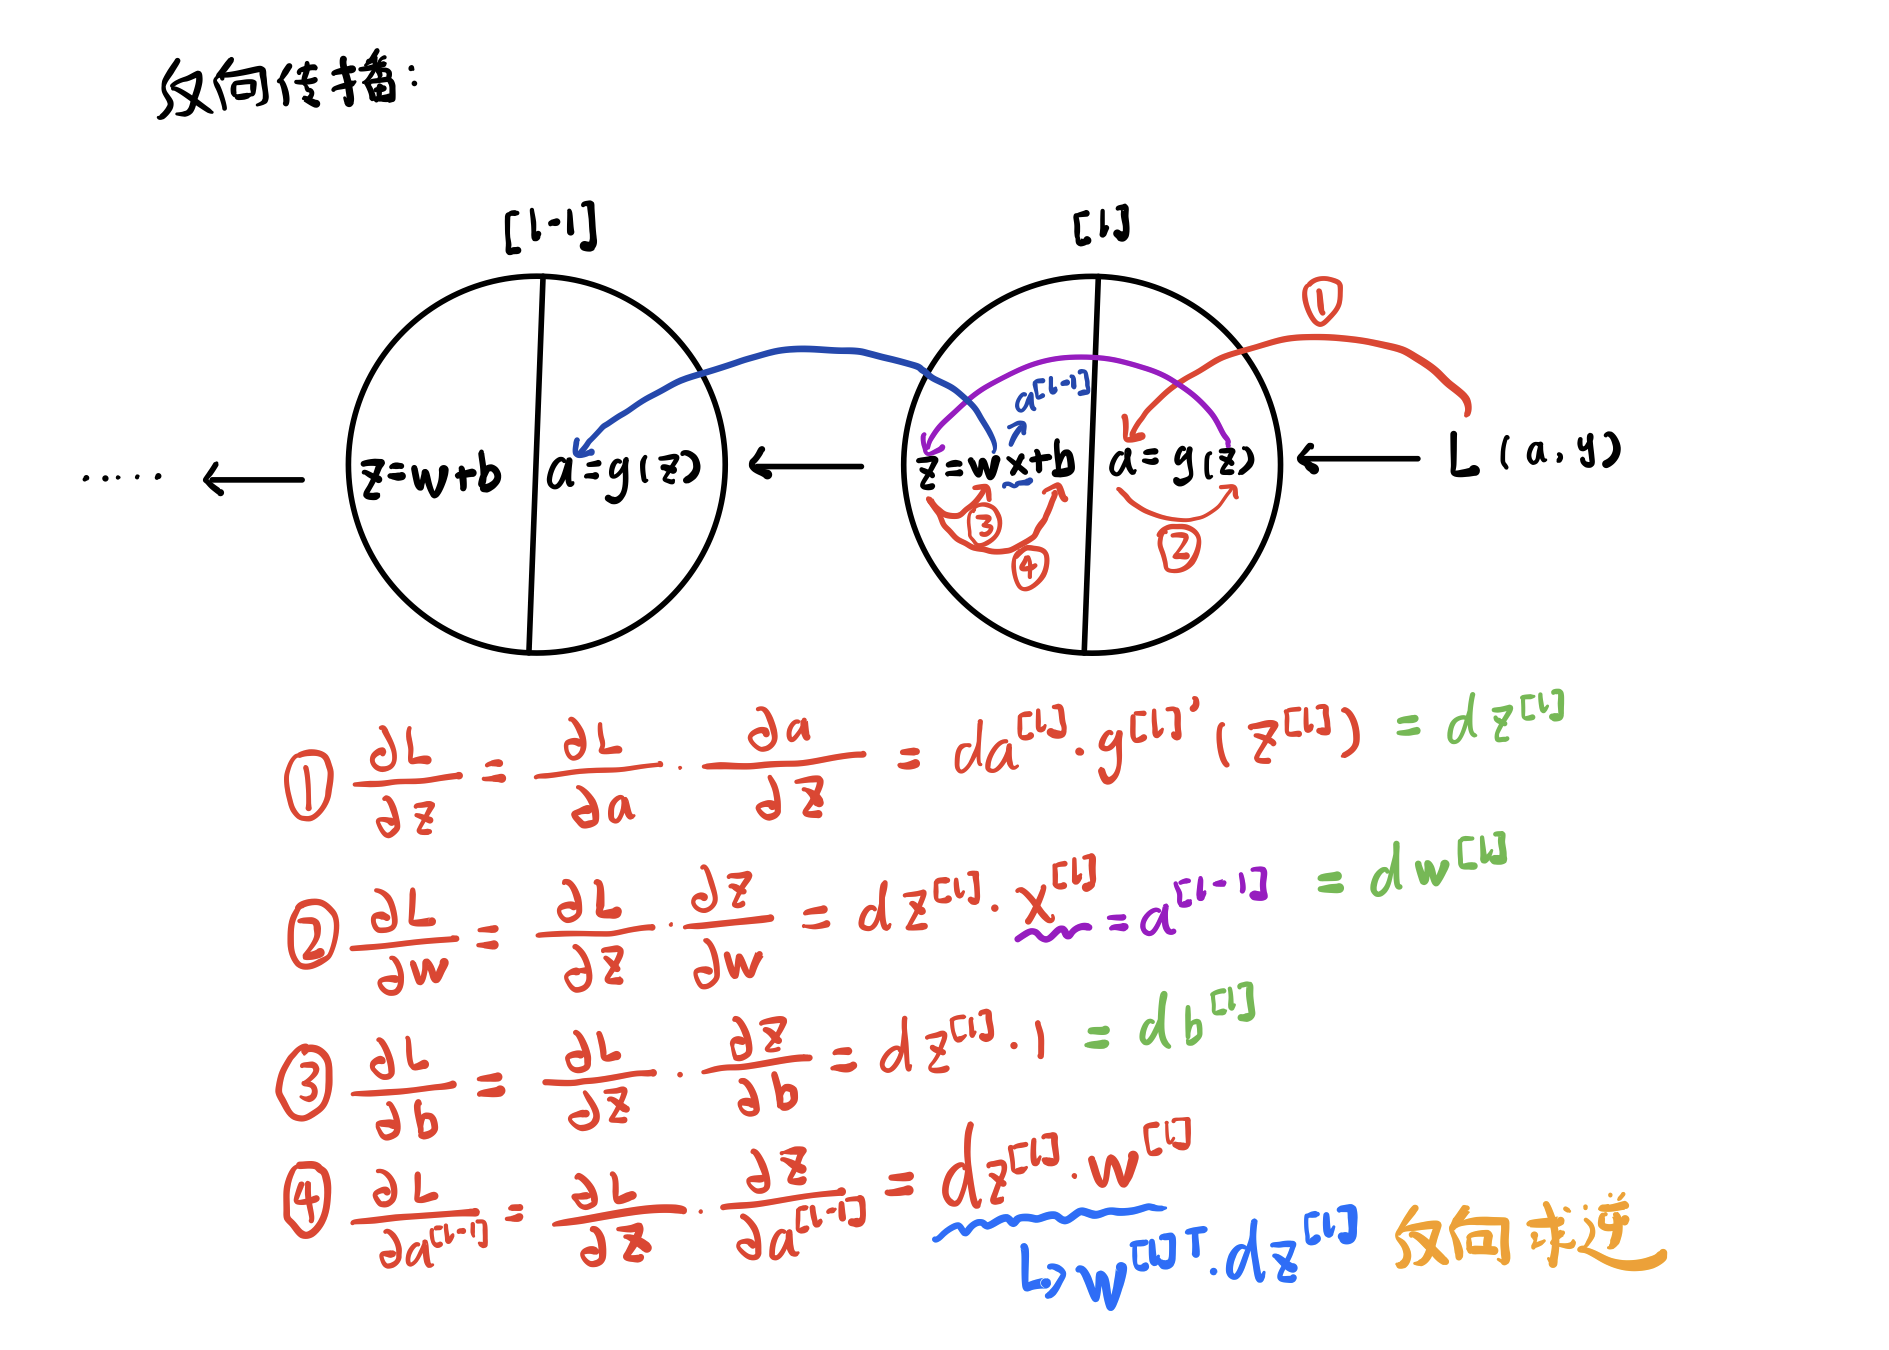 反向传播:
[l-1] [l]
①
a^[l-1]
..... ← z=w+b a=g(z) ← z=wx+b a=g(z) ← L(a,y)
③ ④ ②
① ∂L/∂z = ∂L/∂a · ∂a/∂z = da^[l] · g^[l]'(z^[l]) = dz^[l]
② ∂L/∂w = ∂L/∂z · ∂z/∂w = dz^[l] · x^[l] = a^[l-1] = dw^[l]
③ ∂L/∂b = ∂L/∂z · ∂z/∂b = dz^[l] · 1 = db^[l]
④ ∂L/∂a^[l-1] = ∂L/∂z · ∂z/∂a^[l-1] = dz^[l] · w^[l]
↳ w^[l]T · dz^[l] 反向求逆